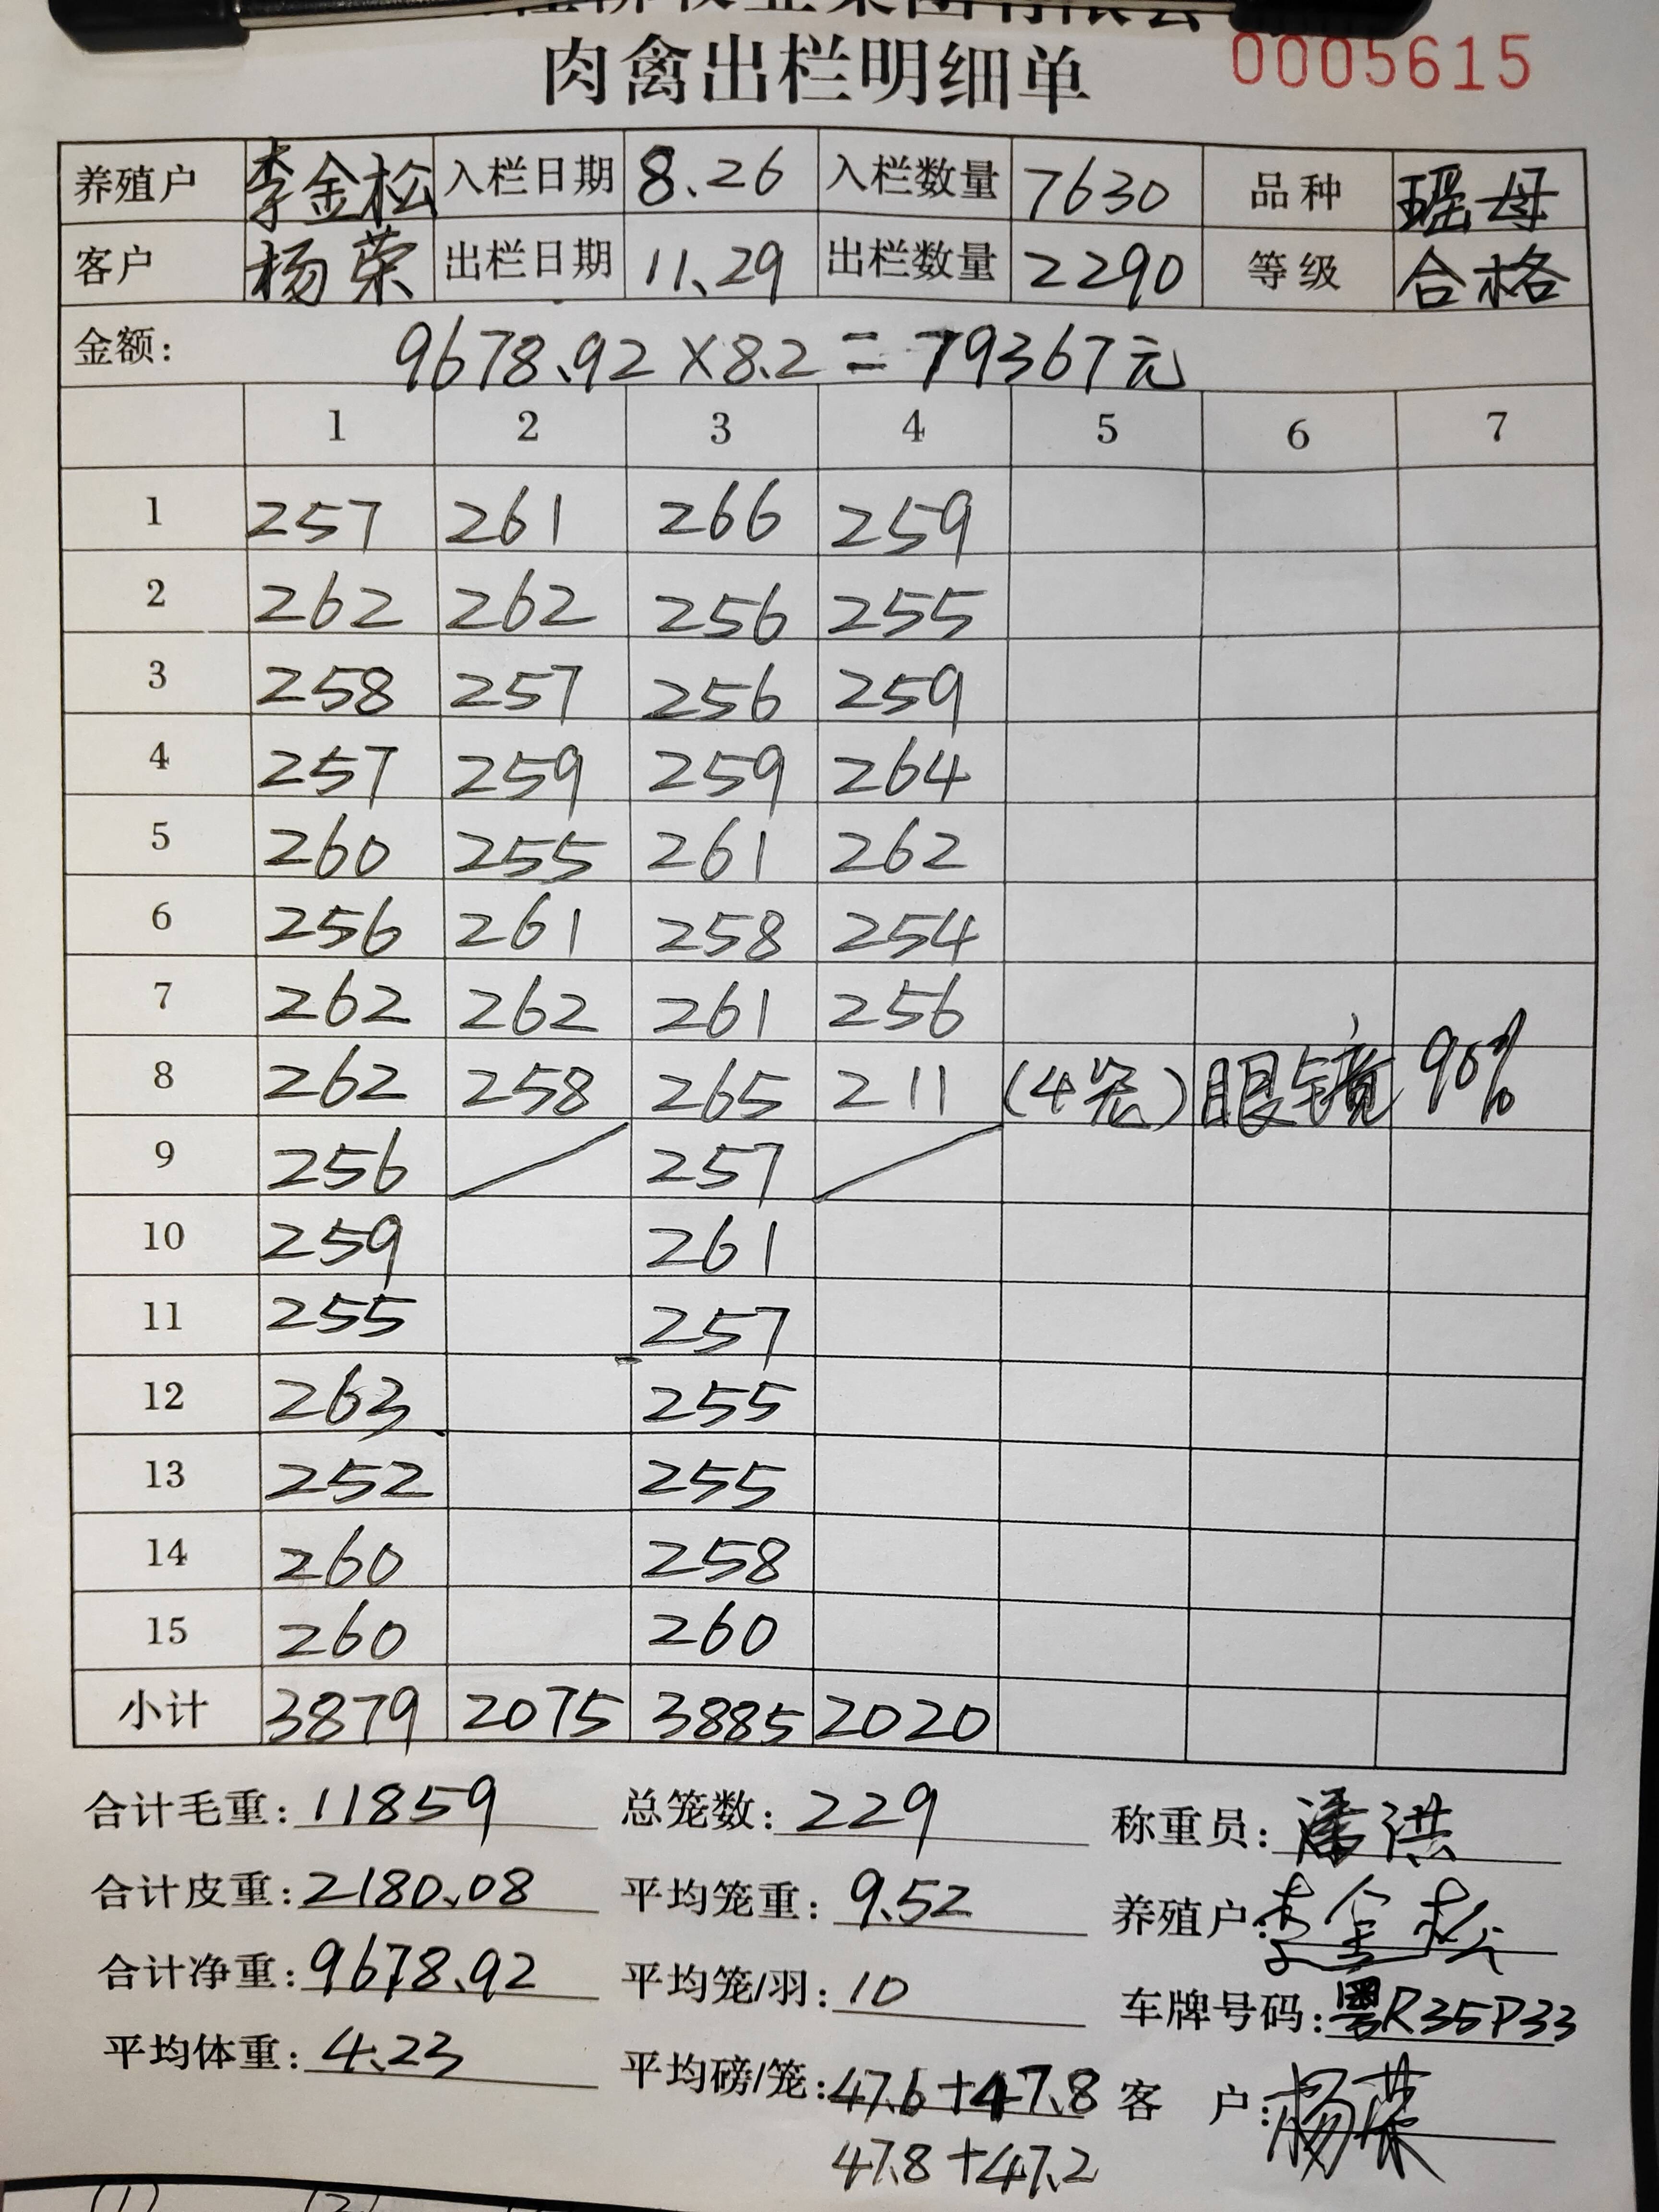 集团有限公
肉禽出栏明细单 0005615
养殖户 李金松 入栏日期 8.26 入栏数量 7630 品种 瑶母
客户 杨荣 出栏日期 11.29 出栏数量 2290 等级 合格
金额: 9678.92×8.2=79367元
1 2 3 4 5 6 7
1 257 261 266 259
2 262 262 256 255
3 258 257 256 259
4 257 259 259 264
5 260 255 261 262
6 256 261 258 254
7 262 262 261 256
8 262 258 265 211 (4笼) 眼镜 90%
9 256 257
10 259 261
11 255 257
12 263 255
13 252 255
14 260 258
15 260 260
小计 3879 2075 3885 2020
合计毛重: 11859 总笼数: 229 称重员: 潘洪
合计皮重: 2180.08 平均笼重: 9.52 养殖户: 李金松
合计净重: 9678.92 平均笼/羽: 10 车牌号码: 粤R35P33
平均体重: 4.23 平均磅/笼: 47.6+47.8 客 户: 杨荣
47.8+47.2
(1) (2)